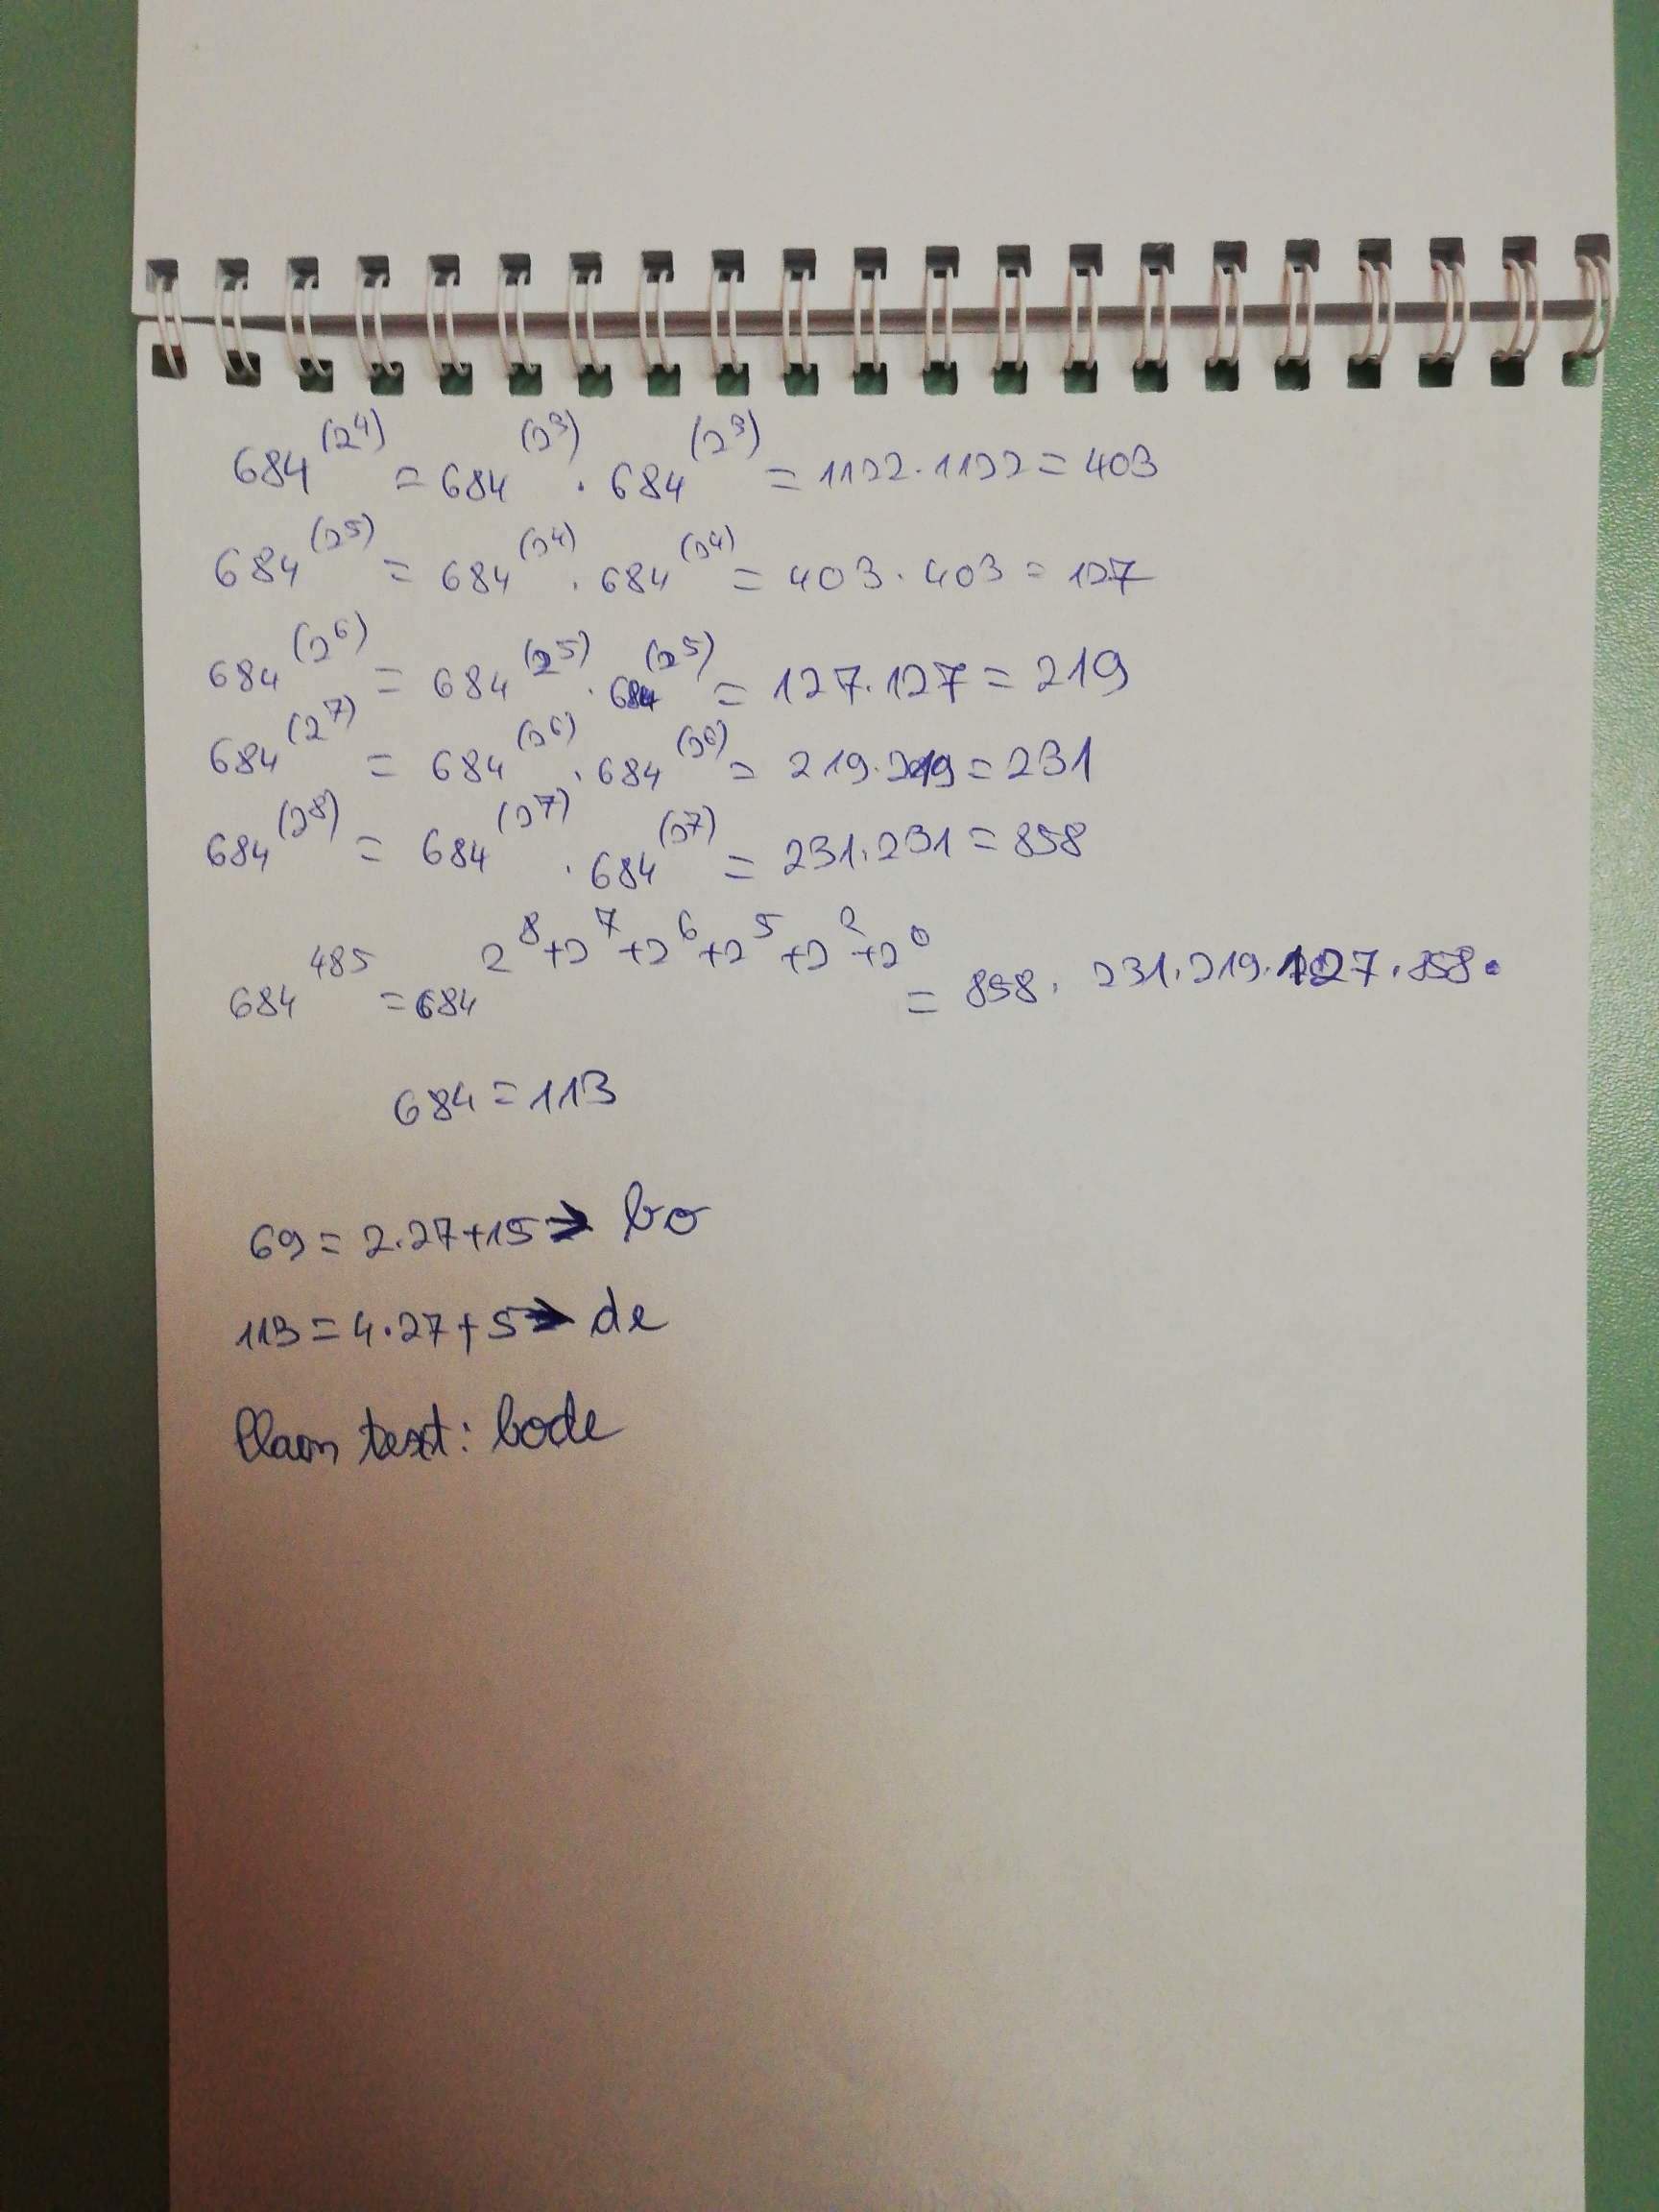 684^(2^4) = 684^(2^3) · 684^(2^3) = 1122·1122 = 403
684^(2^5) = 684^(2^4) · 684^(2^4) = 403·403 = 127
684^(2^6) = 684^(2^5) · 684^(2^5) = 127·127 = 219
684^(2^7) = 684^(2^6) · 684^(2^6) = 219·219 = 231
684^(2^8) = 684^(2^7) · 684^(2^7) = 231·231 = 858
684^485 = 684^(2^8+2^7+2^6+2^5+2^2+2^0) = 858·231·219·127·858·
684 = 113
69 = 2·27+15 → bo
113 = 4·27+5 → de
Plain text: bode